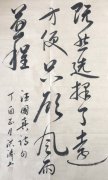 既然选择了远
方便只顾风雨
兼程
汪国真诗句
丁酉